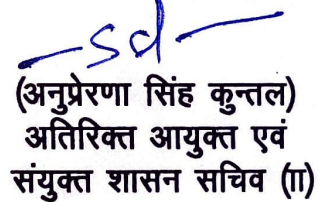 -sd-
(अनुप्रेरणा सिंह कुन्तल)
अतिरिक्त आयुक्त एवं
संयुक्त शासन सचिव (II)